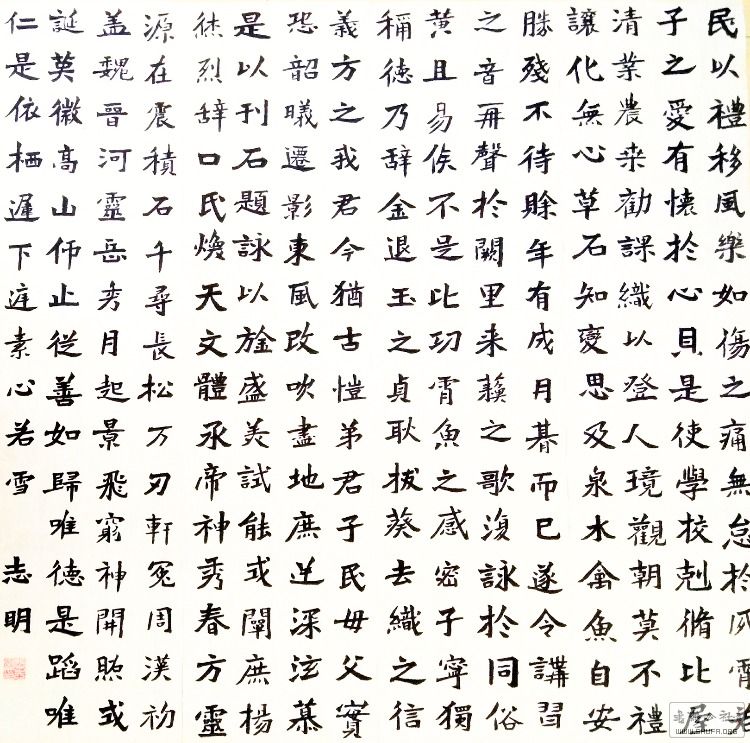 民以禮移風樂如傷之痛無怠於夙宵若
子之愛有懷於心貝是使學校剋脩比屋
清業農桒勸課織以登人境觀朝莫不禮
讓化無心草石知變恩及泉水禽魚自安
勝殘不待賖年有成月朞而已遂令講習
之音再聲於闕里来蘓之歌復詠於同俗
黄且易俟不是比功霄魚之感密子寧獨
稱德乃辞金退玉之貞耿拔葵去織之信
義方之我君今猶古愷弟君子民毋父實
恐韶曦遷影東風改吹盡地庶逆深泫慕
是以刊石題詠以旍盛美試能或闡庶揚
烋烈辞口氏煥天文體承帝神秀春方靈
源在震積石千尋長松万刃軒冕周漢初
盖魏晉河靈岳秀月起景飛窮神開照或
誕莫徵高山仰止從善如歸唯德是蹈唯
仁是依栖遲下庭素心若雪
志明
WWW.SHUFA.ORG